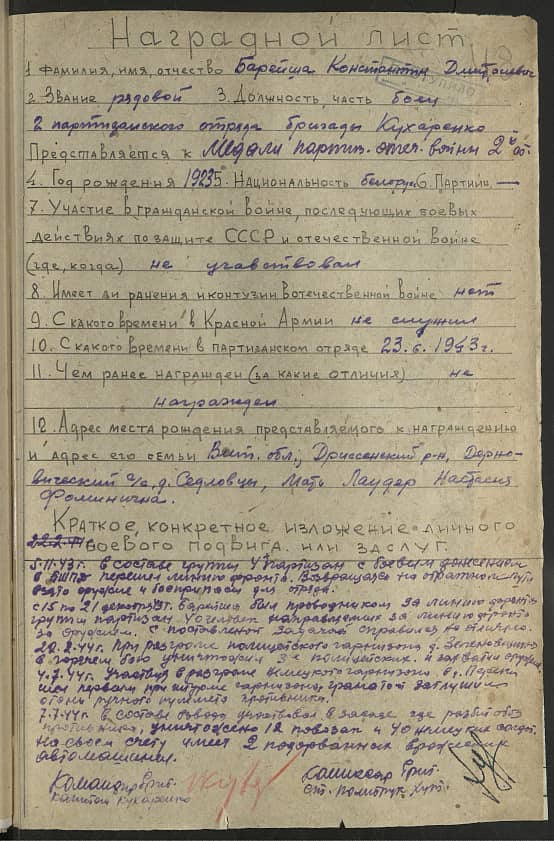 Наградной лист
1 Фамилия, имя, отчество Барейша Константин
2. Звание рядовой 3. Должность, часть боец
2 партизанского отряда бригады Кухаренко
Представляется к Медали партиз. отеч. войны 2й ст.
4. Год рождения 1923 5. Национальность белорус 6. Партийн. —
7. Участие в гражданской войне, последующих боевых
действиях по защите СССР и отечественной войне
(где, когда) не учавствовал
8. Имеет ли ранения и контузии в отечественной войне нет
9. С какого времени в Красной Армии не служил
10. С какого времени в партизанском отряде 23.6.1943 г.
11. Чем ранее награжден (за какие отличия) не
награжден
12. Адрес места рождения представляемого к награждению
и адрес его семьи Вит. обл., Дриссенский р-н, Дерно-
вический с/с, д. Седловцы, Мать Лаудер Настасия
Фоминична.
Краткое, конкретное изложение личного
боевого подвига или заслуг.
5.11.43 г. в составе группы 4 партизан с боевым донесением
в БШПД перешел линию фронта. Возвращаясь на обратном пути
взято оружие и боеприпасы для отряда.
с 15 по 21 декабря Барейша был проводником за линию фронта
группы партизан 40 человек направляемых за линию фронта
за оружием. С поставленой задачей справился на отлично.
20.2.44 г. При разгроме полицейского гарнизона д.
в горячем бою уничтожил 3-х полицейских и захватил оружие
4.7.44 г. Участвуя в разгроме немецкого гарнизона в д.
шел первым при штурме гарнизона, гранатой заглушил
огонь ручного пулемета противника.
7.7.44 г. в составе взвода участвовал в засаде где разбит обоз
противника, уничтожено 12 повозок и 40 немецких солдат.
На своем счету имеет 2 подорванных вражеских
автомашины.
Командир бриг. Комиссар бриг.
Капитан Кухаренко ст. политрук